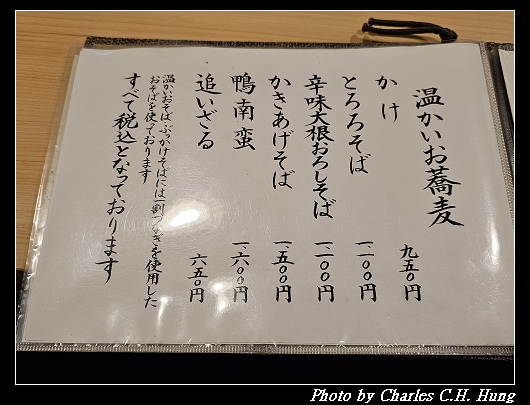 温かいお蕎麦
かけ 九五〇円
とろろそば 一、二〇〇円
辛味大根おろしそば 一、二〇〇円
かきあげそば 一、五〇〇円
鴨南蛮 一、六〇〇円
追いざる 六五〇円
温かいおそば・ぶっかけそばには一割つなぎを使用した
おそばを使っております
すべて税込となっております
Photo by Charles C.H. Hung